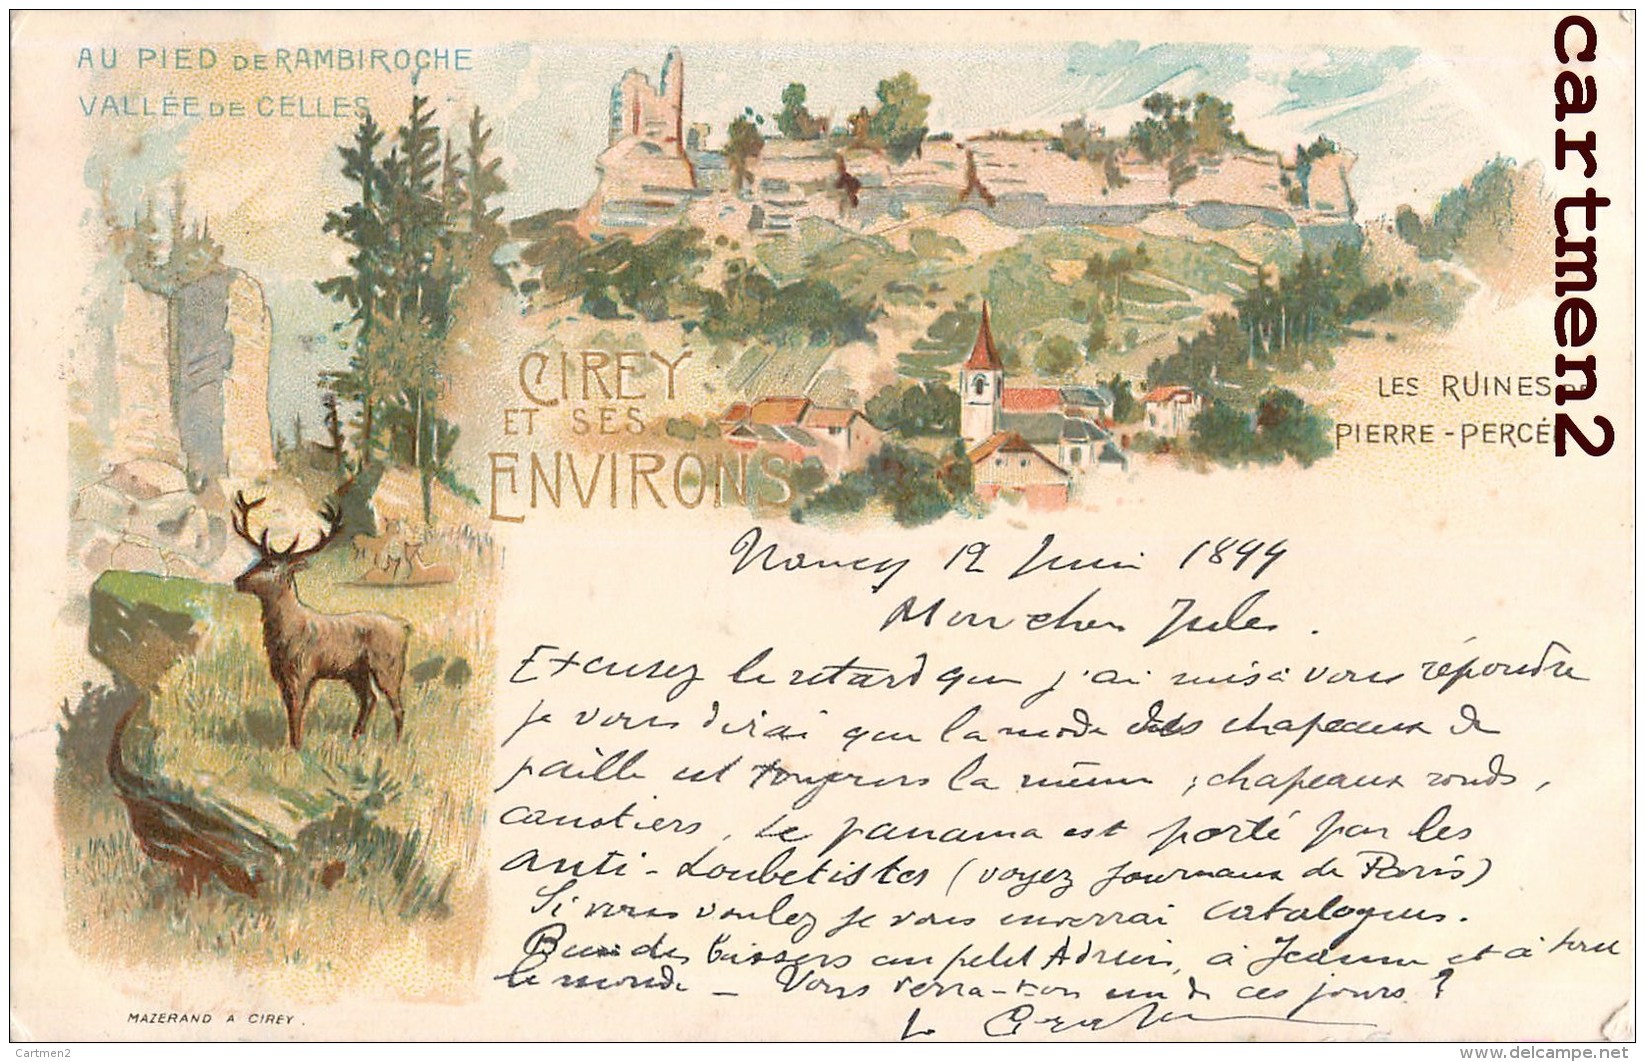 AU PIED DE RAMBIROCHE
VALLÉE DE CELLES
cartmen2
CIREY
ET SES
ENVIRONS
LES RUINES DE
PIERRE-PERCÉE
Nancy 12 Juin 1899
Mon cher Jules.
Excusez le retard que j'ai mis à vous répondre
je vous dirai que la mode des chapeaux de
paille est toujours la même ; chapeaux ronds,
canotiers, le panama est porté par les
anti-Loubetistes (voyez journaux de Paris)
Si vous voulez je vous enverrai catalogues.
Bien des baisers au petit Adrien, à Jeanne et à tout
le monde - Vous verra-t-on un de ces jours ?
MAZERAND A CIREY.
Cartmen2
www.delcampe.net